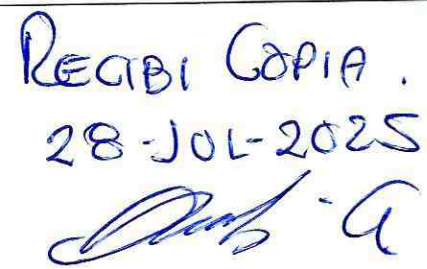 RECIBI COPIA.
28-JUL-2025